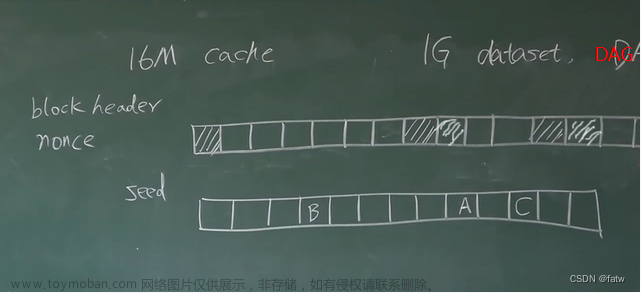 16M cache 1G dataset, DAG DA
block header
nonce
seed
B A C
www.toymoban.com 网络图片仅供展示，非存储，如有侵权请联系删除。
CSDN @fatw